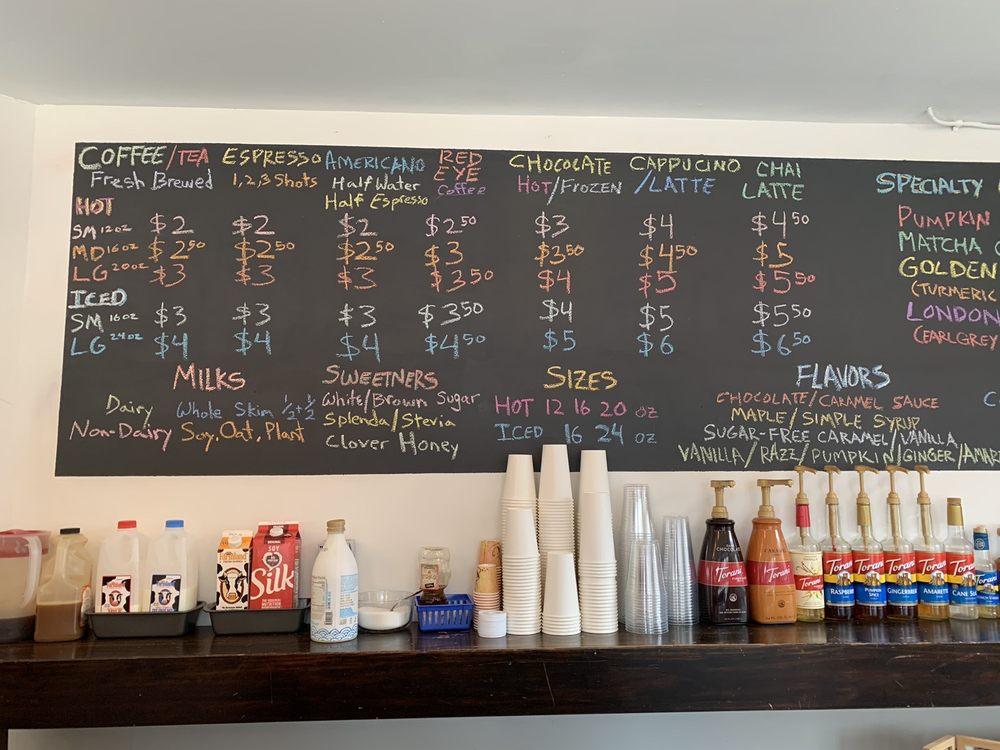 COFFEE/TEA ESPRESSO AMERICANO RED EYE CHOCOLATE CAPPUCINO CHAI LATTE SPECIALTY
Fresh Brewed 1,2,3 Shots Half Water Half Espresso Coffee HOT/FROZEN /LATTE
HOT
SM 12oz $2 $2 $2 $2.50 $3 $4 $4.50
MD 16oz $2.50 $2.50 $2.50 $3 $3.50 $4.50 $5
LG 20oz $3 $3 $3 $3.50 $4 $5 $5.50
ICED
SM 16oz $3 $3 $3 $3.50 $4 $5 $5.50
LG 24oz $4 $4 $4 $4.50 $5 $6 $6.50
PUMPKIN
MATCHA
GOLDEN
(TURMERIC
LONDON
(EARLGREY
MILKS
Dairy Whole Skim ½+½
Non-Dairy Soy, Oat, Plant
SWEETNERS
White/Brown Sugar
Splenda/Stevia
Clover Honey
SIZES
HOT 12 16 20 oz
ICED 16 24 oz
FLAVORS
CHOCOLATE/CARAMEL SAUCE
MAPLE/SIMPLE SYRUP
SUGAR-FREE CARAMEL/VANILLA
VANILLA/RAZZ/PUMPKIN/GINGER/AMAR
SOY
Silk
Torani
Torani
Torani
Torani
RASPBERRY
Torani
PUMPKIN SPICE
Torani
GINGERBREAD
Torani
AMARETTO
Torani
CANE SU
Torani